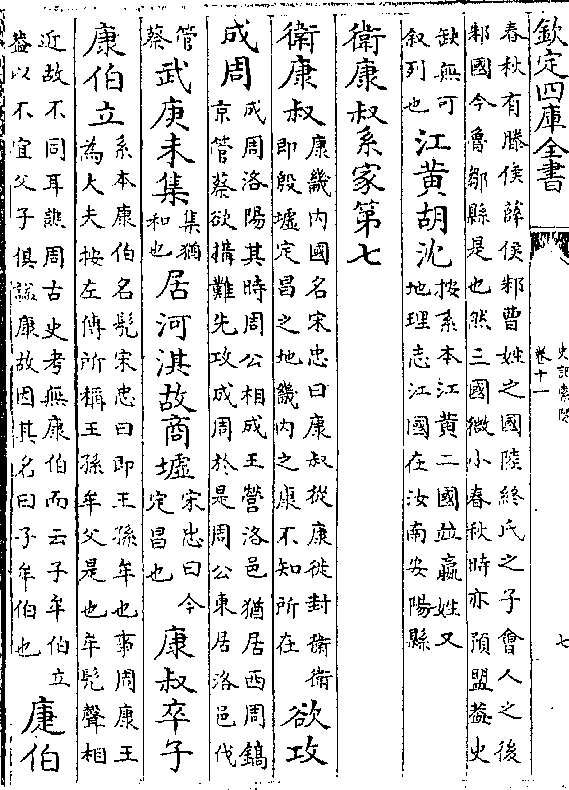 欽定四庫全書
史記索隱
卷十一
七
春秋有滕侯薛侯邾曹姓之國陸終氏之子會人之後
邾國今魯鄒縣是也然三國微小春秋時亦預盟蓋史
缺無可
叙列也
江黄胡沈
按系本江黄二國並嬴姓又
地理志江國在汝南安陽縣
衛康叔系家第七
衛康叔
康畿内國名宋忠曰康叔從康徙封衛衛
即殷墟定昌之地畿内之康不知所在
欲攻
成周
成周洛陽其時周公相成王營洛邑猶居西周鎬
京管蔡欲搆難先攻成周於是周公東居洛邑伐
管
蔡
武庚未集
集猶
和也
居河淇故商墟
宋忠曰今
定昌也
康叔卒子
康伯立
系本康伯名髠宋忠曰即王孫牟也事周康王
為大夫按左傳所稱王孫牟父是也牟髠聲相
近故不同耳譙周古史考無康伯而云子牟伯立
蓋以不宜父子俱諡康故因其名曰子牟伯也
康伯